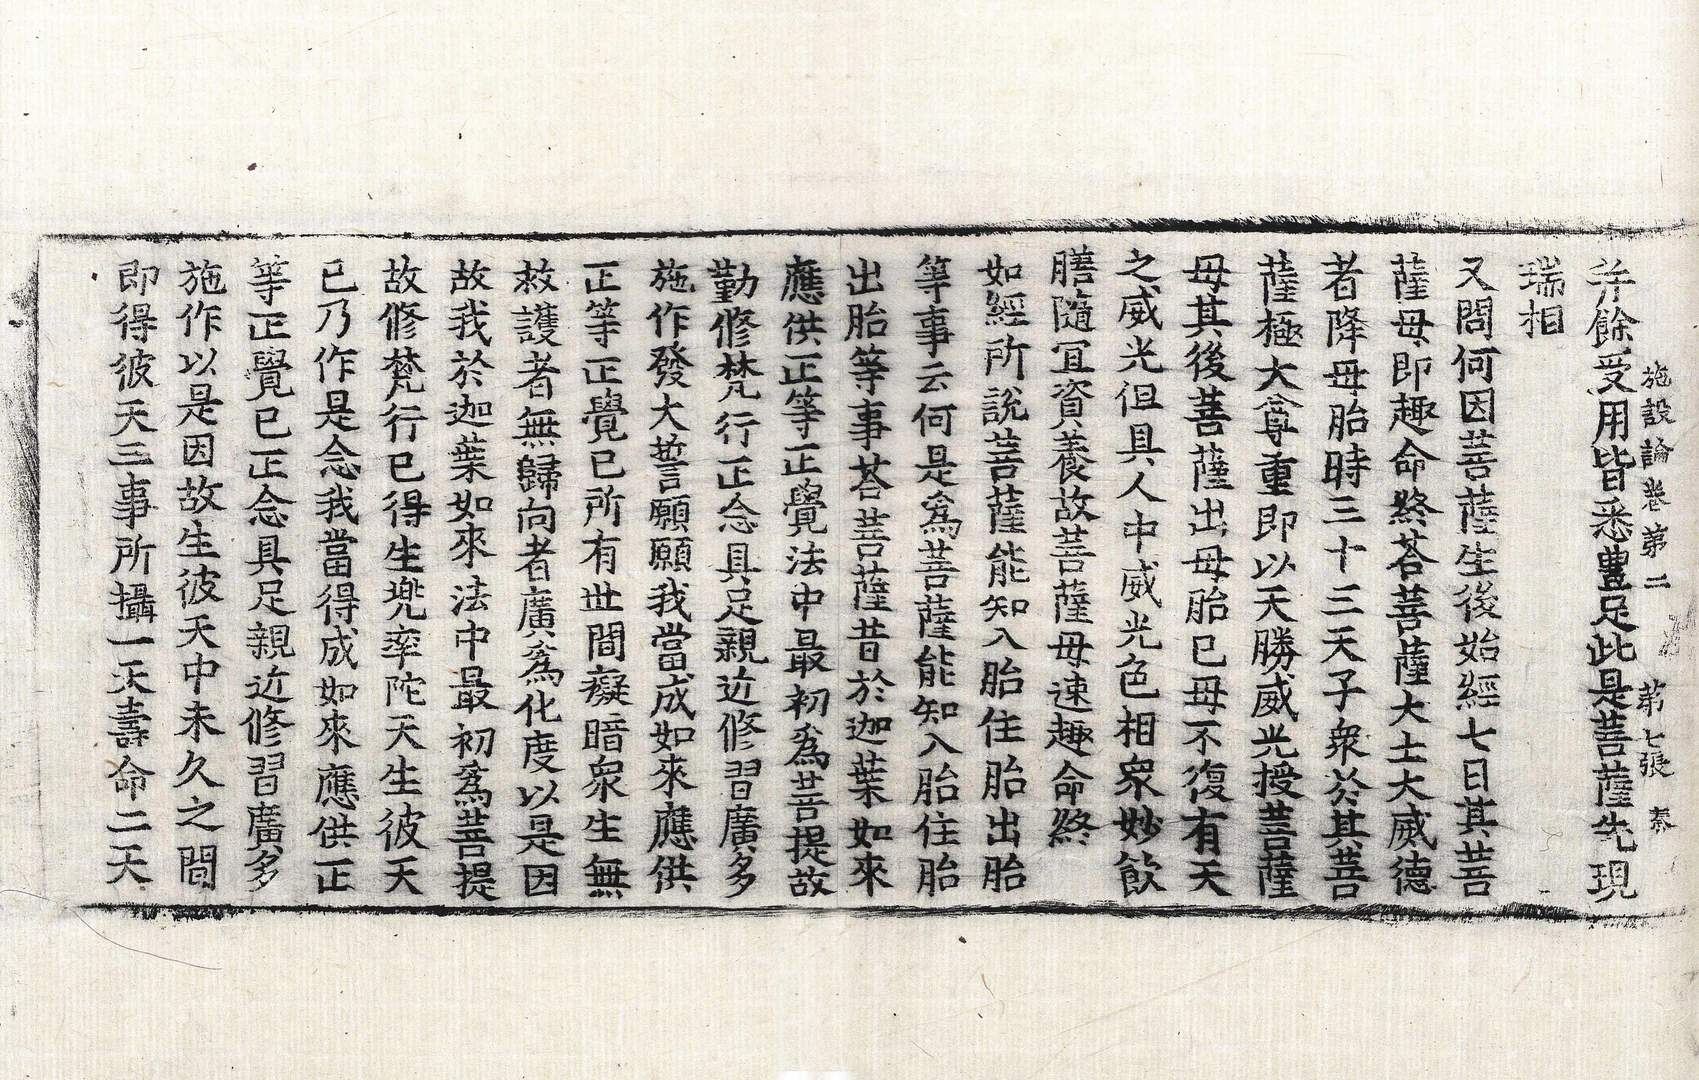 施設論卷第二　第七張　奈
并餘受用皆悉豊足此是菩薩先現
瑞相
又問何因菩薩生後始經七日其菩
薩母即趣命終荅菩薩大士大威德
者降母胎時三十三天子衆於其菩
薩極大尊重即以天勝威光授菩薩
母其後菩薩出母胎已母不復有天
之威光但具人中威光色相衆妙飲
膳隨冝資養故菩薩母速趣命終
如經所說菩薩能知入胎住胎出胎
等事云何是爲菩薩能知入胎住胎
出胎等事荅菩薩昔於迦葉如來
應供正等正覺法中最初爲菩提故
勤修梵行正念具足親近修習廣多
施作發大誓願願我當成如來應供
正等正覺已所有世間癡暗衆生無
救護者無歸向者廣爲化度以是因
故我於迦葉如來法中最初爲菩提
故修梵行已得生兠率陀天生彼天
已乃作是念我當得成如來應供正
等正覺已正念具足親近修習廣多
施作以是因故生彼天中未久之間
即得彼天三事所攝一天壽命二天